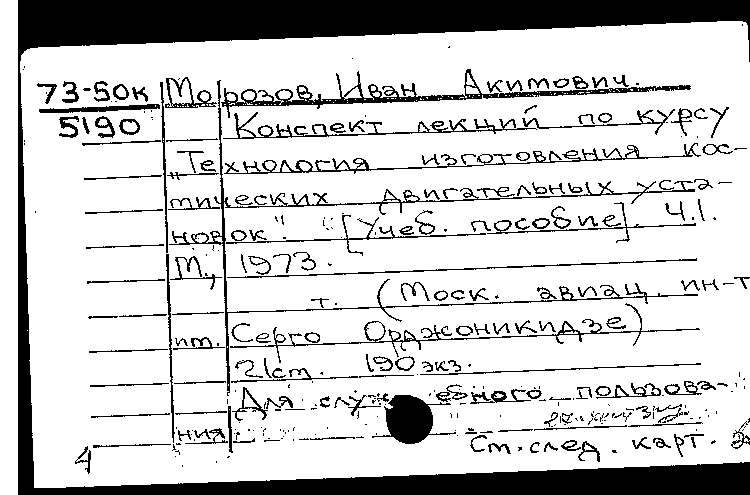 73-50к Морозов, Иван Акимович.
5190 Конспект лекций по курсу
„Технология изготовления кос-
мических двигательных уста-
новок". [Учеб. пособие]. Ч.1.
М., 1973.
т. (Моск. авиац. ин-т
им. Серго Орджоникидзе)
190 экз.
Для служебного пользова-
ния
См. след. карт.
4